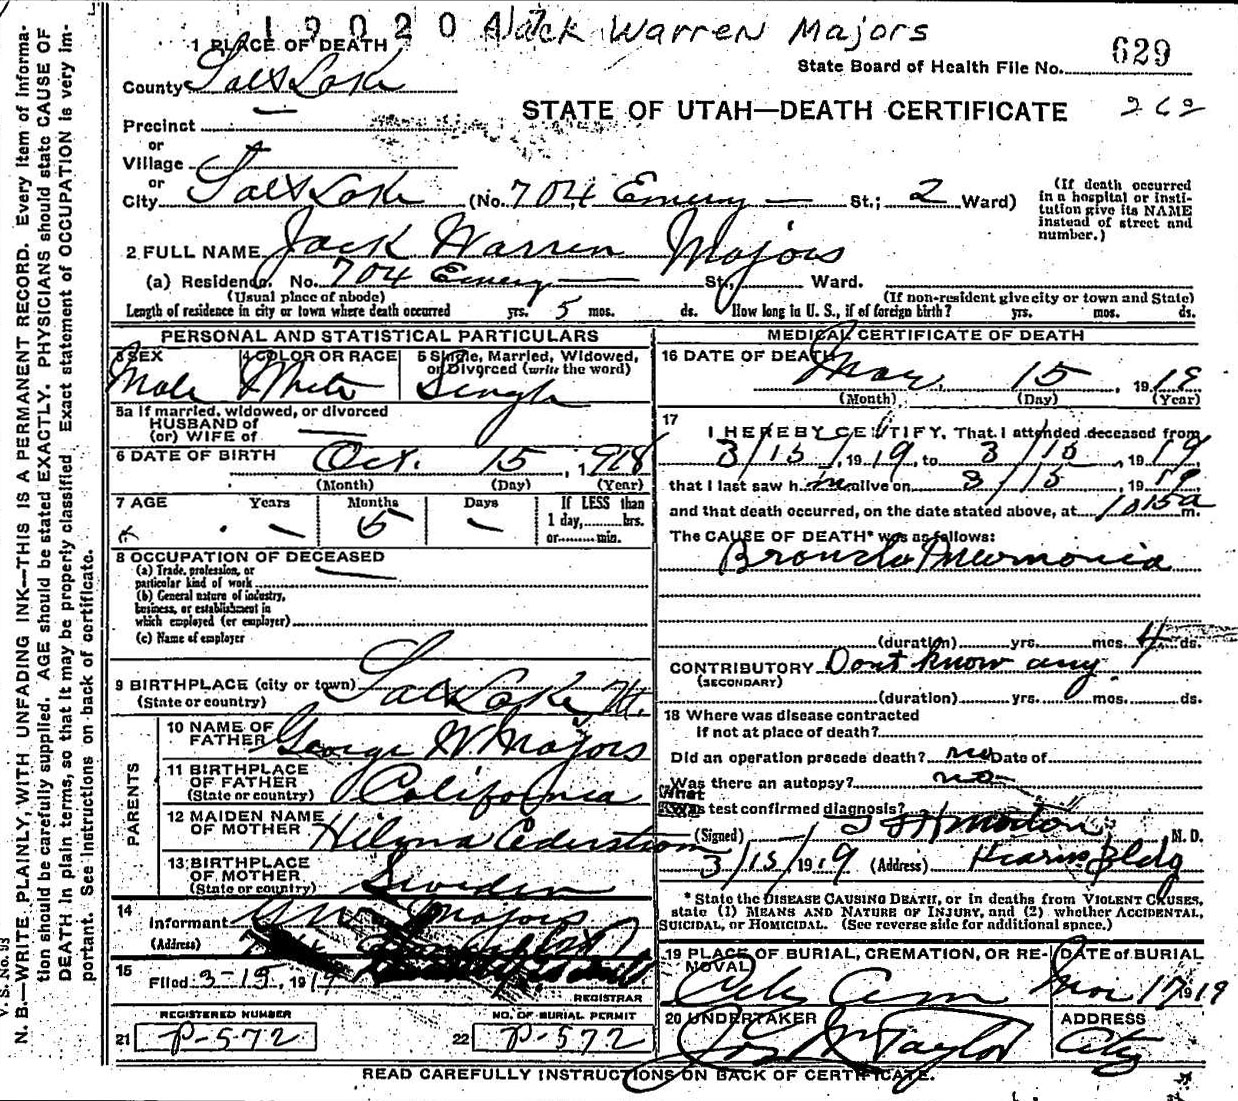 19020 A Jack Warren Majors
1 PLACE OF DEATH
State Board of Health File No. 629
County Salt Lake
STATE OF UTAH—DEATH CERTIFICATE 262
Precinct
or
Village
or
City Salt Lake (No. 704 Emery St.; 2 Ward)
(If death occurred in a hospital or institution give its NAME instead of street and number.)
2 FULL NAME Jack Warren Majors
(a) Residence. No. 704 Emery St., Ward.
(Usual place of abode) (If non-resident give city or town and State)
Length of residence in city or town where death occurred yrs. 5 mos. ds. How long in U. S., if of foreign birth? yrs. mos. ds.
PERSONAL AND STATISTICAL PARTICULARS
3 SEX Male
4 COLOR OR RACE White
5 Single, Married, Widowed, or Divorced (write the word) Single
5a If married, widowed, or divorced
HUSBAND of
(or) WIFE of
6 DATE OF BIRTH Oct. 15, 1918
(Month) (Day) (Year)
7 AGE Years Months Days If LESS than
5 1 day, hrs.
or min.
8 OCCUPATION OF DECEASED
(a) Trade, profession, or
particular kind of work
(b) General nature of industry,
business, or establishment in
which employed (or employer)
(c) Name of employer
9 BIRTHPLACE (city or town) Salt Lake Ut.
(State or country)
PARENTS
10 NAME OF
FATHER George W Majors
11 BIRTHPLACE
OF FATHER
(State or country) California
12 MAIDEN NAME
OF MOTHER Hilma Cederstrom
13 BIRTHPLACE
OF MOTHER
(State or country) Sweden
14
Informant Majors
(Address)
15
Filed 3-19, 1919
REGISTRAR
REGISTERED NUMBER NO. OF BURIAL PERMIT
21 P-572 22 P-572
MEDICAL CERTIFICATE OF DEATH
16 DATE OF DEATH
Mar, 15, 1919
(Month) (Day) (Year)
17
I HEREBY CERTIFY, That I attended deceased from
3/15, 1919, to 3/15, 1919
that I last saw him alive on 3/15, 1919
and that death occurred, on the date stated above, at 1015a m.
The CAUSE OF DEATH* was as follows:
Broncho Pneumonia
(duration) yrs. mos. 4 ds.
CONTRIBUTORY Dont know any
(SECONDARY)
(duration) yrs. mos. ds.
18 Where was disease contracted
If not at place of death?
Did an operation precede death? no Date of
Was there an autopsy? no
What test confirmed diagnosis?
(Signed) M. D.
3/15/1919 (Address) Bldg
* State the DISEASE CAUSING DEATH, or in deaths from VIOLENT CAUSES,
state (1) MEANS AND NATURE OF INJURY, and (2) whether ACCIDENTAL,
SUICIDAL, or HOMICIDAL. (See reverse side for additional space.)
19 PLACE OF BURIAL, CREMATION, OR REMOVAL City Cem
DATE of BURIAL Mar 17 1919
20 UNDERTAKER Taylor
ADDRESS City
READ CAREFULLY INSTRUCTIONS ON BACK OF CERTIFICATE.
V. S. No. 93
N. B.—WRITE PLAINLY, WITH UNFADING INK—THIS IS A PERMANENT RECORD. Every item of Informa-
tion should be carefully supplied. AGE should be stated EXACTLY. PHYSICIANS should state CAUSE OF
DEATH in plain terms, so that it may be properly classified. Exact statement of OCCUPATION is very im-
portant. See instructions on back of certificate.